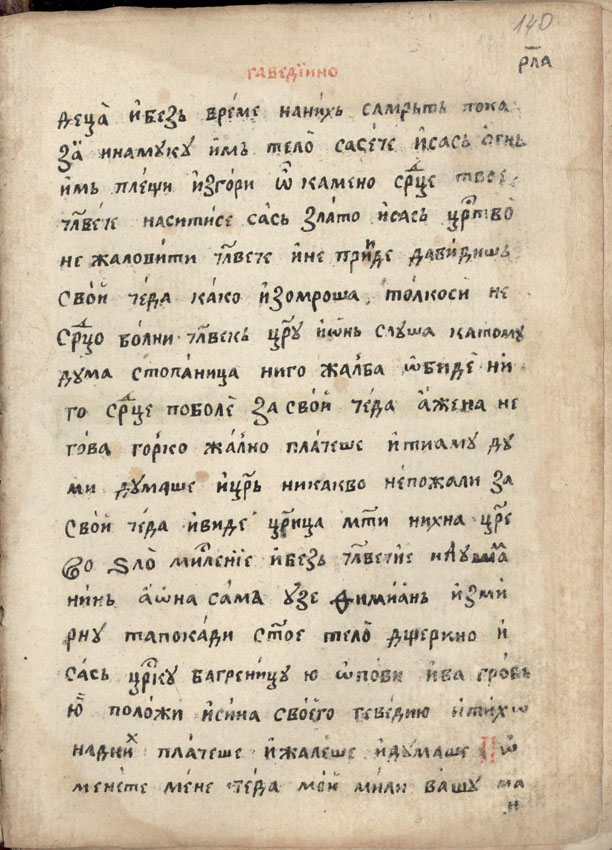 140
рл҃а
гаведїино
деца̀ и҆безь вре́ме наних̾ь самрьть пока
за̀ инамꙋкꙋ и҆мь тело̀ сасе́че и҆сась ѻ҆гнь
и҆мь пле́щи и҆згори ѿ камено ср҃дце твое
чл҃вече насити́се са́сь зла́то и҆сась цр҃тво̀
не жаловити чл҃вече и҆не прїиде дави́дишь
сво́й че́да ка́ко и҆зомроша, то́лкоси не
ср҃дцо бо́лни чл҃векь цр҃ꙋ и҆ѡ́нь слꙋша катомꙋ
дꙋма стопа́ница ниго жа́лба ѡ҆биде ни
го ср҃дце поболѐ за сво́й че́да а҆жена не
го́ва го́рко жа́лно пла́чеше и҆тиамꙋ дꙋ
ми дꙋмаше и҆цр҃ь никакво непожали за
сво́й че́да и҆виде цр҃ица мт҃и нихна цр҃е
во ѕло̀ мл҃ченїе и҆безь чл҃вечїе
нинь а҆ѡ҆на сама ꙋзе ѳимїа́нь и҆зми
рнꙋ та покади ст҃ое тело̀ дщерино и҆
са́сь цр҃кꙋ багрени́цꙋ ю ѡ҆по́ви и҆ва гро́бь
ю҆̀ поло́жи и҆си́на сво́его геве́дию и҆тихѡ
надних пла́чеше и҆жале́ше и҆дꙋмаше ѽ
мене́те ме́не че́да мо́й ми́ли вашꙋ ма
и